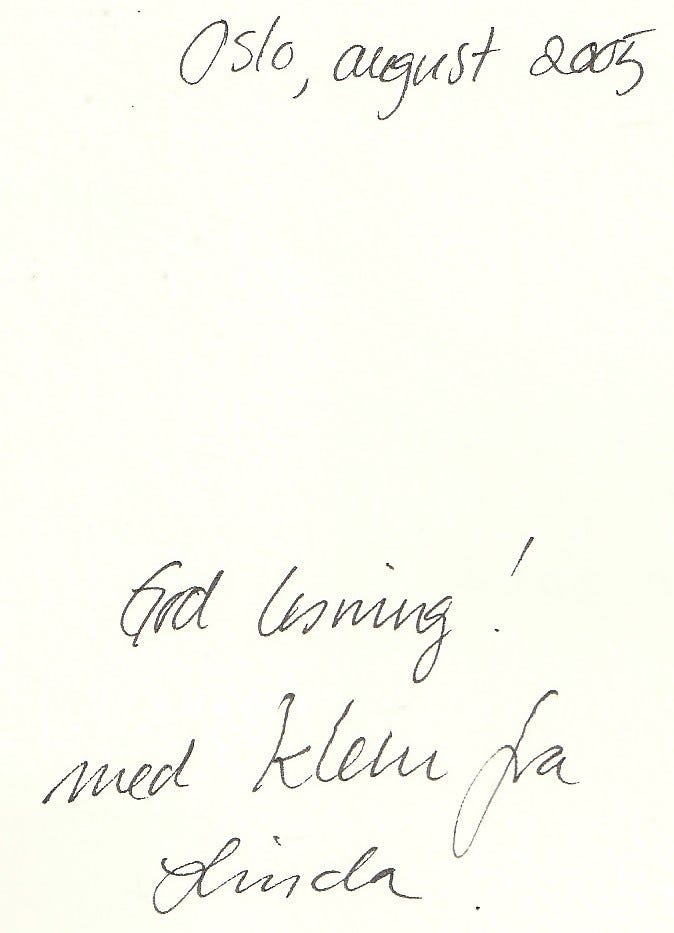 Oslo, august 2005
God lesning!
med klem fra
Linda.